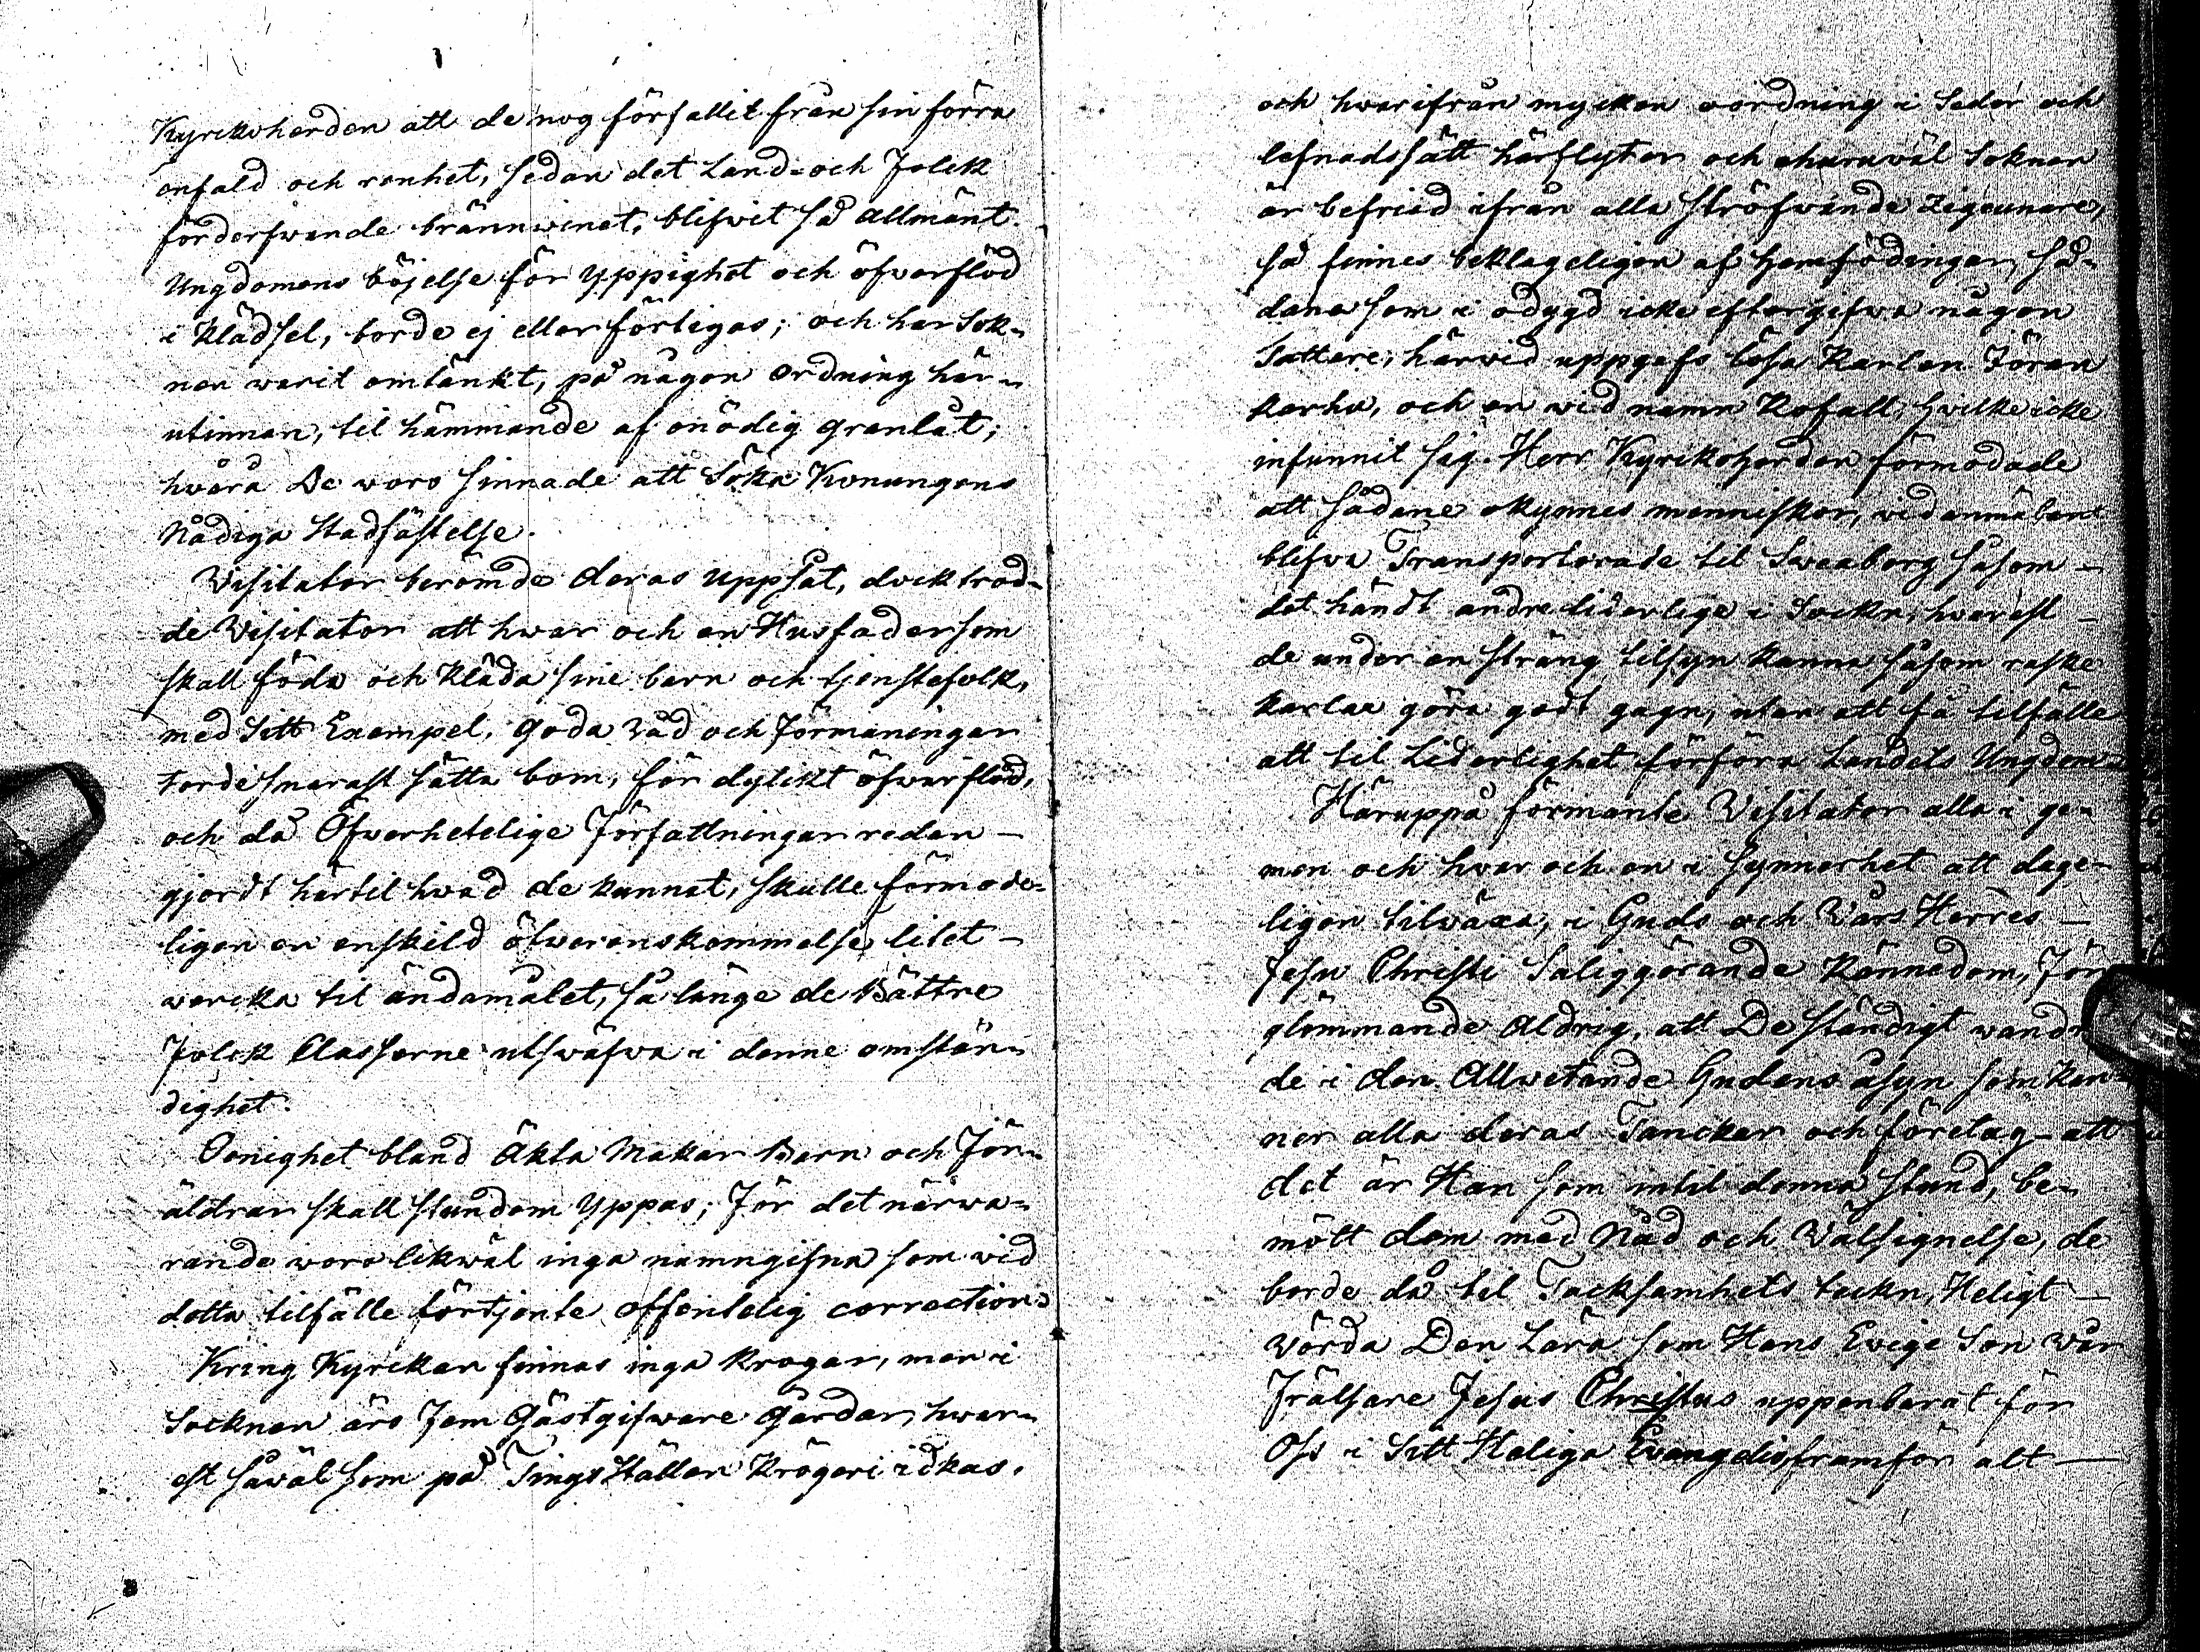 Kyrckoherden att de nog förfallit från sin förra
enfald och renhet, sedan det Land- och Folck
förderfwande brännwinet, blifwit så allmänt.
Ungdomens böjelse för Yppighet och öfwerflöd
i klädsel, borde ej eller förtigas; och har Sok-
nen warit omtänkt, på någon Ordning här-
utinnan, til hämmande af onödig granlåt;
hwåra De woro sinnade att Söka Konungens
Nådiga Stadfästelse.
Visitator berömde deras uppsåt, dock trod-
de Visitator att hwar och en Husfader som
skall föda och kläda sine barn och tjenstefolk,
med Sitt Exempel, goda Råd och Förmaningar
torde snarast sätta bom, för dylikt öfwerflöd,
och då Öfwerhetelige Författningar redan —
gjordt härtil hwad de kunnat, skulle förmode-
ligen en enskild öfwerenskommelse litet —
wercka til ändamålet, så länge de Bättre
Folck Classerne utswäfwa i denne omstän-
dighet.
Oenighet bland Äkta Makar Barn och För-
äldrar skall stundom Yppas; För det närwa-
rande woro likwäl inga namngifna som wid
detta tilfälle förtjente offentelig correction.
Kring Kyrckan finnas inga krogar, men i
Socknen äro Fem Gästgifware Gårdar, hwar-
est såwäl som på Tings Ställen Krögeri idkas.
och hwarifrån mycken oordning i Seder och
lefnadssätt härflyter och ehuruwäl Soknen
är befriad ifrån alla ströfwande Zigeunare,
så finnes beklageligen af Hemfödingar, så-
dana som i odygd icke eftergifwa någon
Tattare; härwid uppgafs lösa Karlen Jören
Karhu, och en wid namn Kofall, Hvilke icke
infunnit sig. Herr Kyrckoherden förmodade
att sådane okynnes menniskor, wid anmälan
blifwa Transporterade til Sweaborg såsom —
det händt andre liderlige i Sockn, hwarest —
de under en sträng tilsyn kunna såsom raske
karlar göra godt gagn, utan att få tilfälle
att til Liderlighet förföra Landets Ungdom.
Häruppå förmante Visitator alla i ge-
men och hwar och en i synnerhet att dage-
ligen tilwäxa, i Guds och Wårs Herres —
Jesu Christi Saliggörande Kännedom, För
glömmande Aldrig, att De ständigt wandra
de i den Allwetande Gudens åsyn som kän-
ner alla deras Tanckar och företag — att
det är Han som intil denna stund, be-
mött dem med Nåd och Wälsignelse, de
borde då til Tacksamhets teckn, Heligt —
Wörda Den Lära som Hans Ewige Son Wår
Frälsare Jesus Christus uppenbarat för
Oss i Sitt Heliga Evangelio, framför alt —